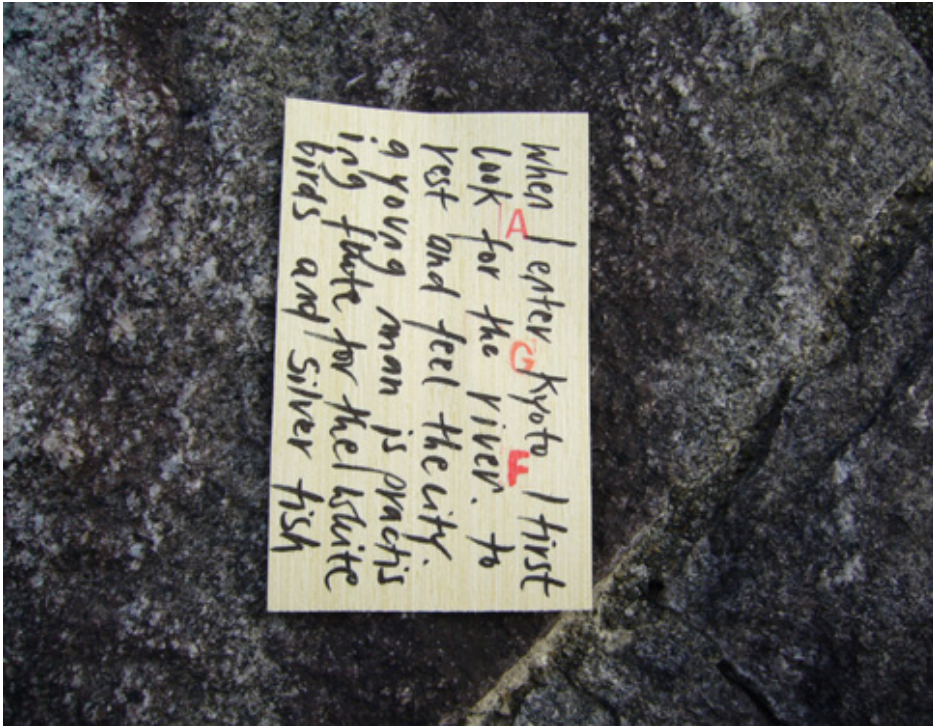 When I enter kyoto I first
A G F
look for the river. to
rest and feel the city.
a young man is practis
ing flute for the white
birds and silver fish